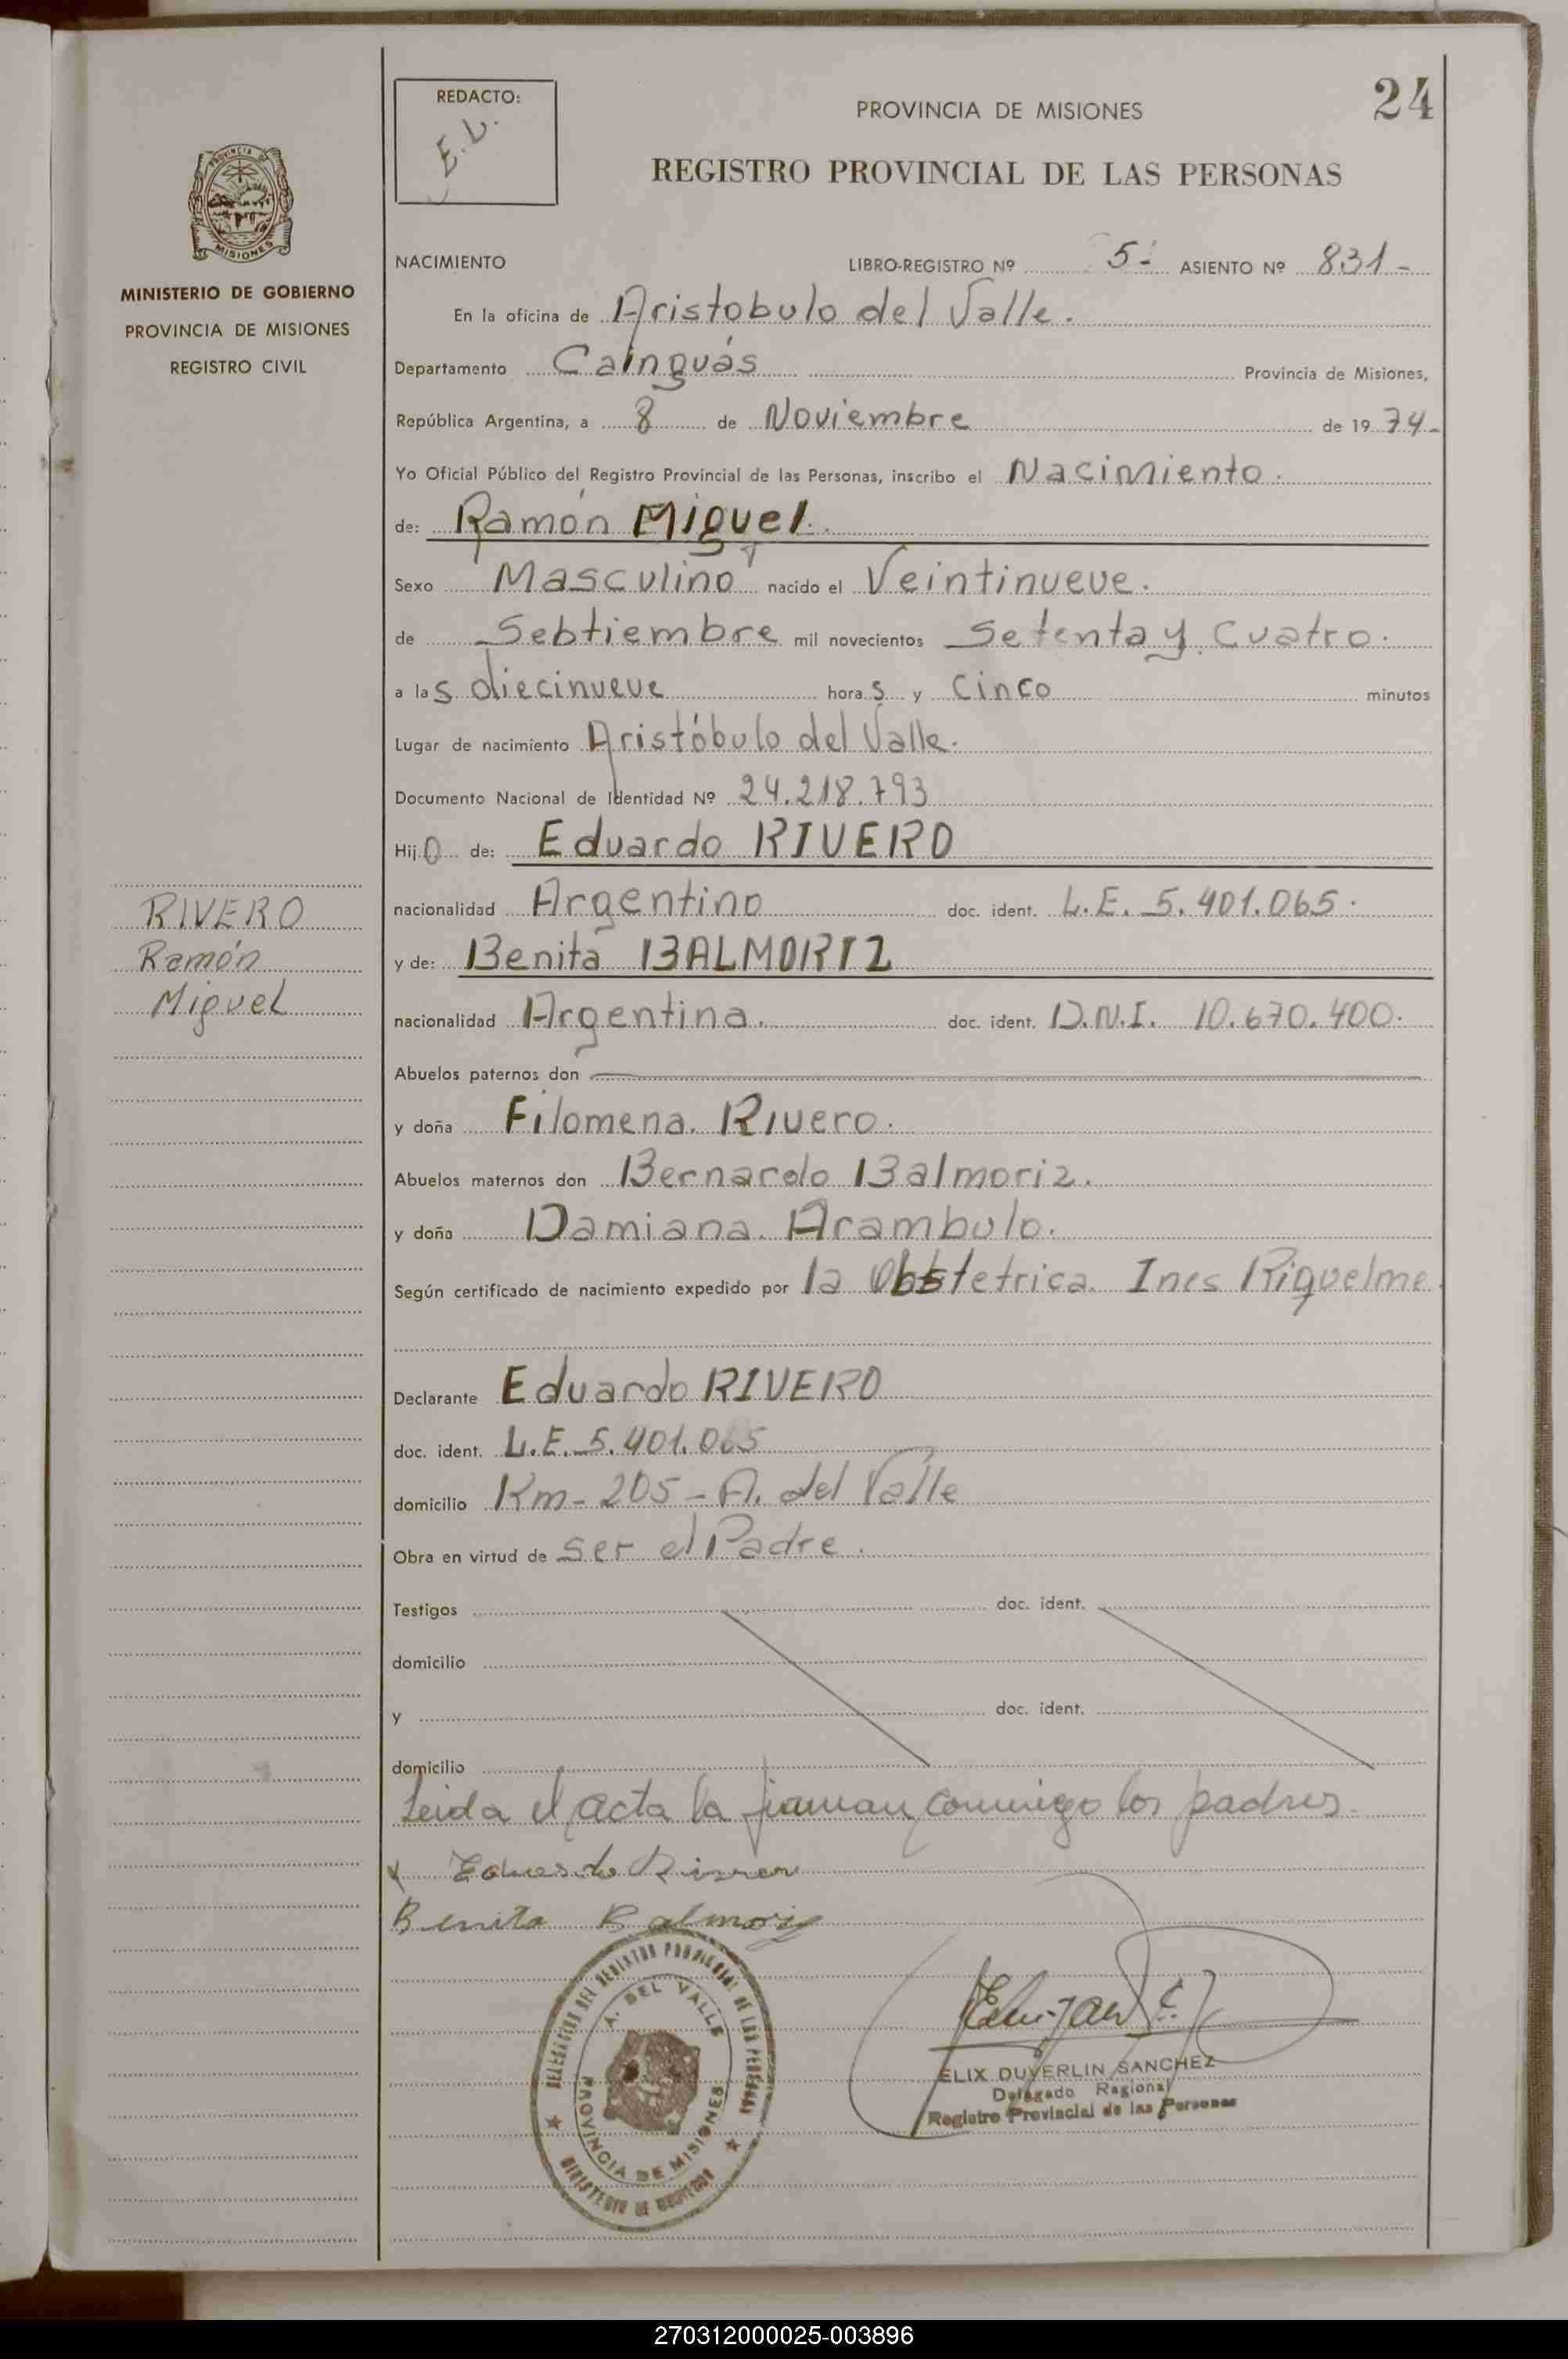 REDACTO:
E.L.
PROVINCIA DE MISIONES
24
REGISTRO PROVINCIAL DE LAS PERSONAS
PROVINCIA DE
MISIONES
MINISTERIO DE GOBIERNO
PROVINCIA DE MISIONES
REGISTRO CIVIL
NACIMIENTO LIBRO-REGISTRO Nº 5- ASIENTO Nº 831-
En la oficina de Aristobulo del Valle.
Departamento Cainguás Provincia de Misiones,
República Argentina, a 8 de Noviembre de 1974-
Yo Oficial Público del Registro Provincial de las Personas, inscribo el Nacimiento.
de: Ramón Miguel.
Sexo Masculino nacido el Veintinueve.
de Sebtiembre mil novecientos Setenta y Cuatro.
a las diecinueve horas y Cinco minutos
Lugar de nacimiento Aristóbulo del Valle.
Documento Nacional de Identidad Nº 24.218.793
Hijo de: Eduardo RIVERO
nacionalidad Argentino doc. ident. L.E. 5.401.065.
y de: Benita BALMORIZ
nacionalidad Argentina. doc. ident. D.N.I. 10.670.400.
RIVERO
Ramón
Miguel
Abuelos paternos don
y doña Filomena Rivero.
Abuelos maternos don Bernardo Balmoriz.
y doña Damiana Arambulo.
Según certificado de nacimiento expedido por la Obstetrica Ines Riquelme.
Declarante Eduardo RIVERO
doc. ident. L.E. 5.401.065
domicilio Km- 205 - A. del Valle
Obra en virtud de ser el Padre.
Testigos doc. ident.
domicilio
y doc. ident.
domicilio
Leida el acta la firman conmigo los padres.
x Eduardo Rivero
Benita Balmoriz
DELEGACION DEL REGISTRO PROVINCIAL DE LAS PERSONAS
A. DEL VALLE
PROVINCIA DE MISIONES
MINISTERIO DE GOBIERNO
ELIX DUVERLIN SANCHEZ
Delegado Regional
Registro Provincial de las Personas
270312000025-003896